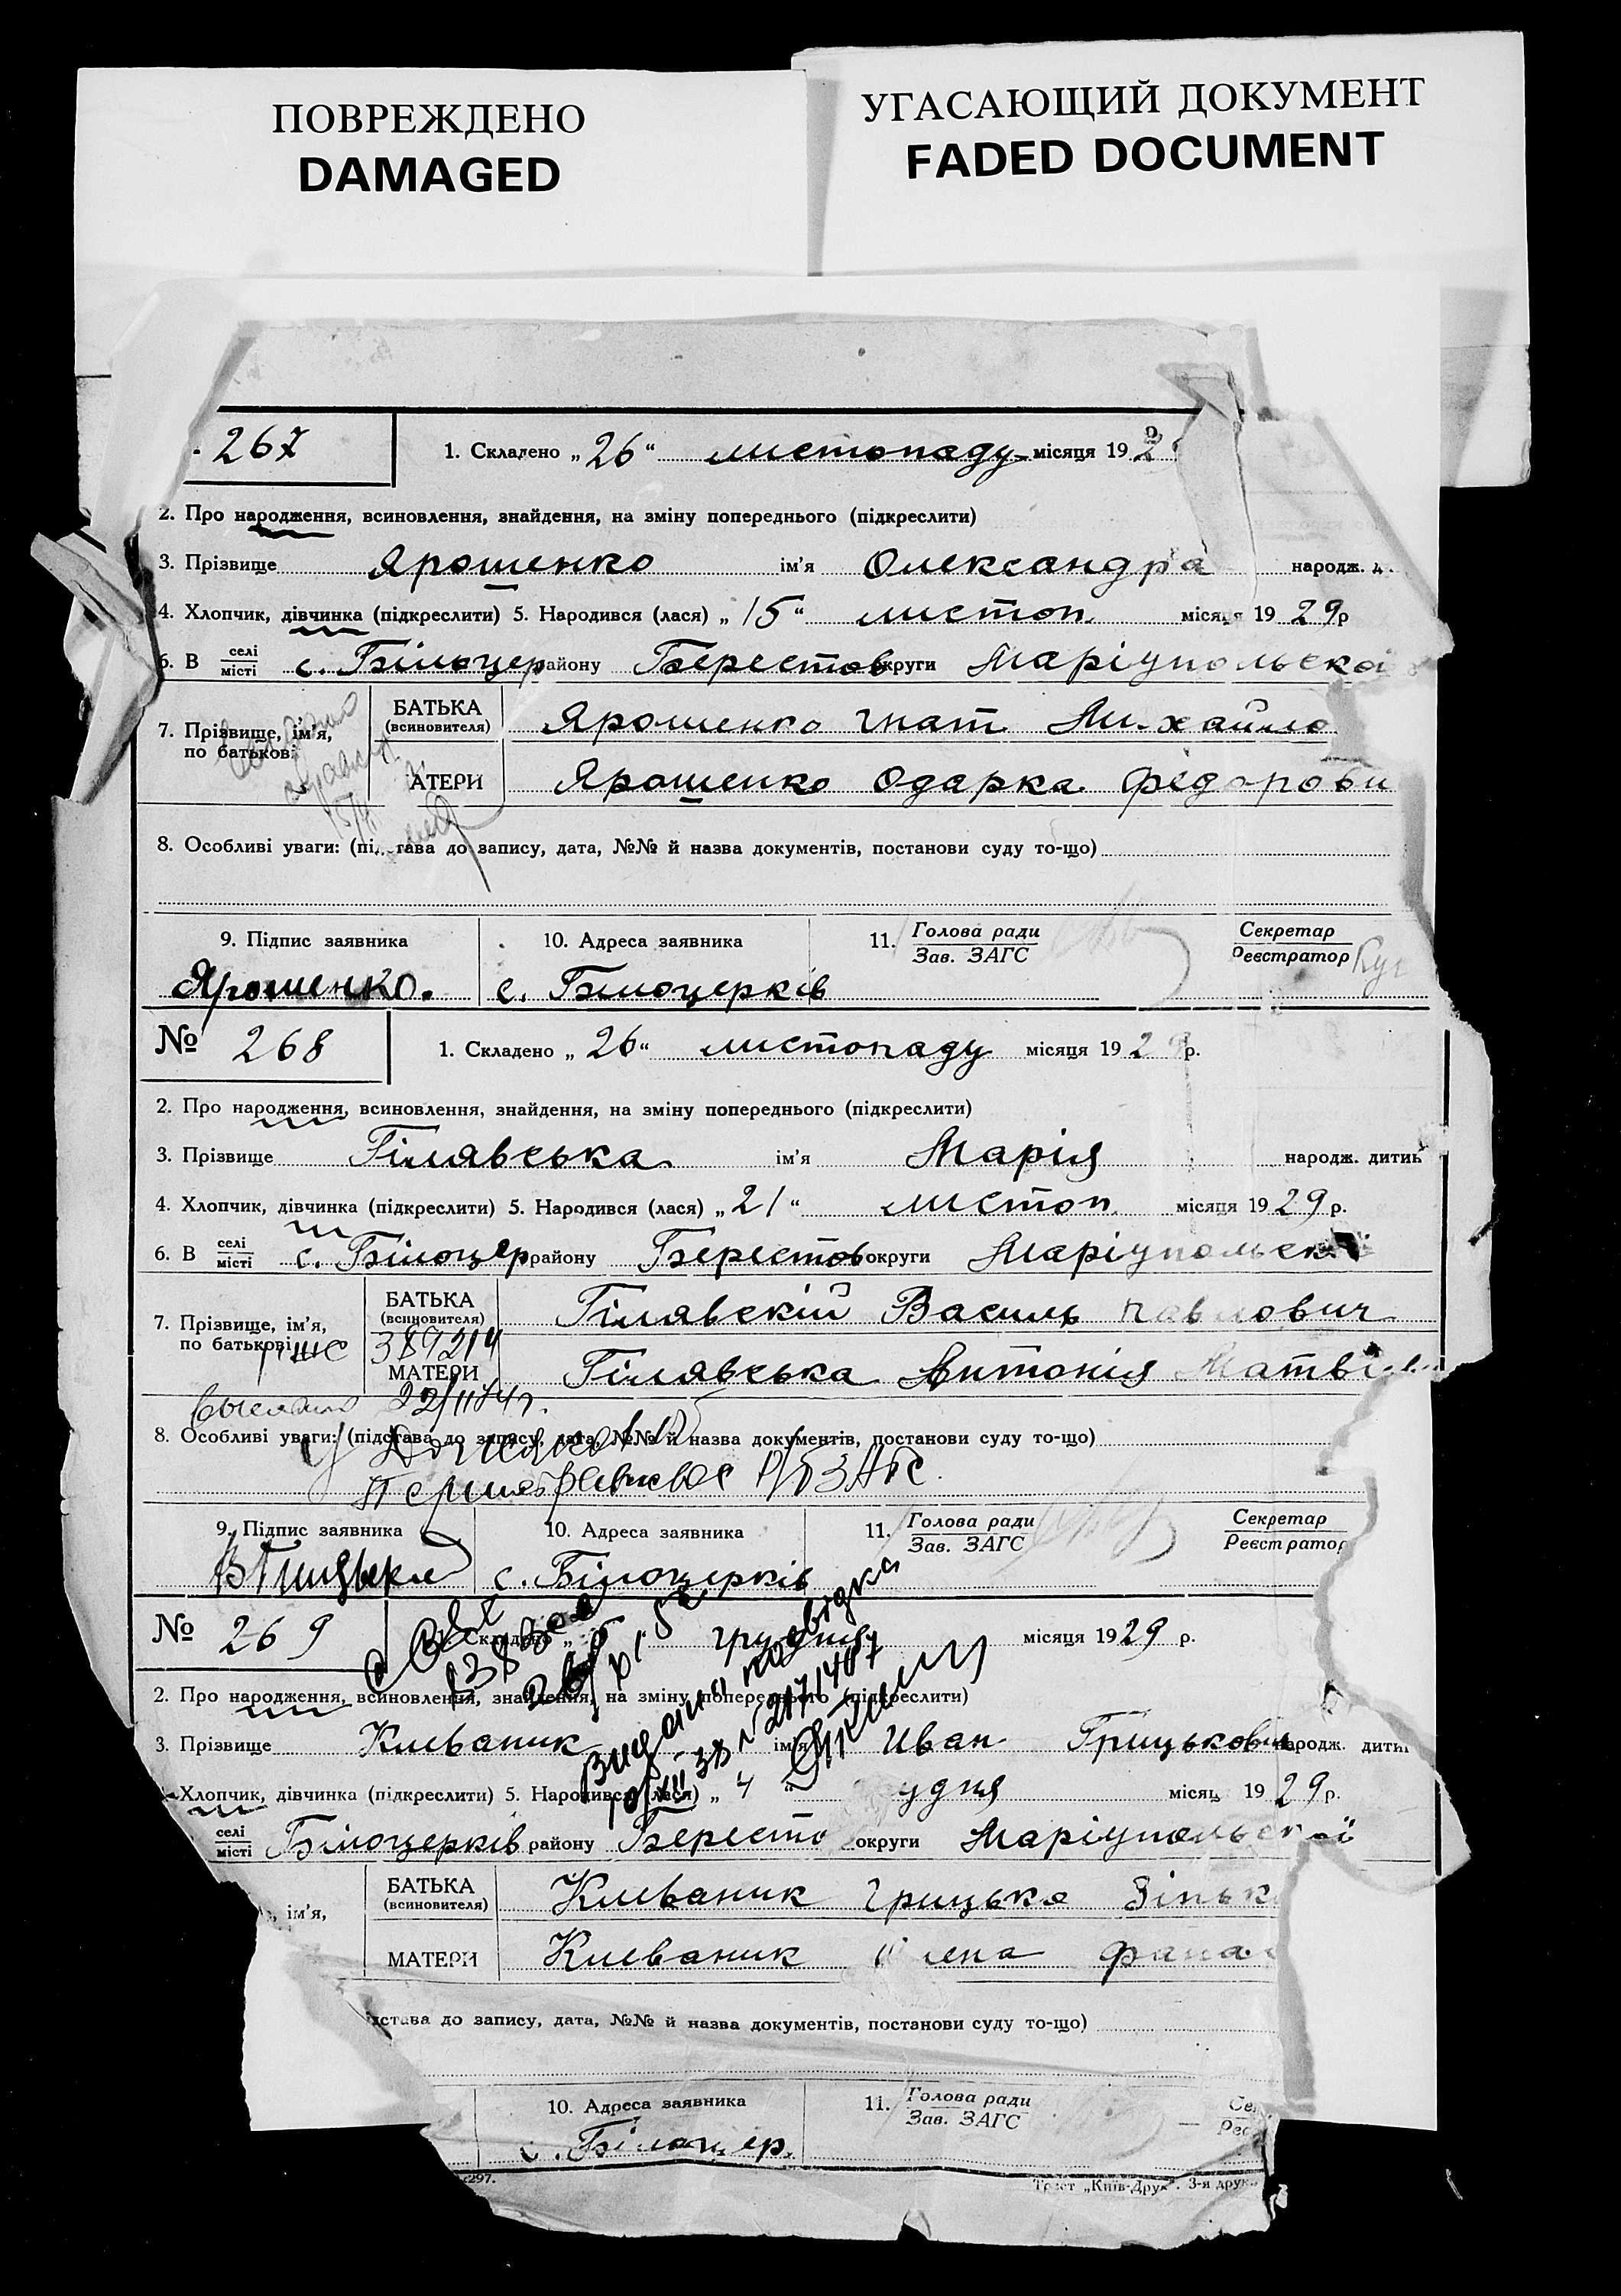 ПОВРЕЖДЕНО
DAMAGED
УГАСАЮЩИЙ ДОКУМЕНТ
FADED DOCUMENT
267
1. Складено „ 26 “ листопаду місяця 192
2. Про народження, всиновлення, знайдення, на зміну попереднього (підкреслити)
3. Прізвище Ярошенко ім'я Олександра народж.
4. Хлопчик, дівчинка (підкреслити) 5. Народився (лася) „ 15 “ листоп. місяця 19 29 р
6. В селі місті с. Білоцер району Берестов округи Маріупольскоі
7. Прізвище, ім'я, по батькові
БАТЬКА (всиновителя) Ярошенко Гнат Михайло
АТЕРИ Ярошенко Одарка Федорови
8. Особливі уваги: (підстава до запису, дата, №№ й назва документів, постанови суду то-що)
9. Підпис заявника 10. Адреса заявника 11. Голова ради Зав. ЗАГС Секретар Реєстратор
Ярошенко. с. Білоцерків
№ 268 1. Складено „ 26 “ листопаду місяця 19 29 р.
2. Про народження, всиновлення, знайдення, на зміну попереднього (підкреслити)
3. Прізвище Гілявська ім'я Марія народж. дитин
4. Хлопчик, дівчинка (підкреслити) 5. Народився (лася) „ 21 “ листоп. місяця 19 29 р.
6. В селі місті с. Білоцер району Берестов округи Маріупольск
7. Прізвище, ім'я, по батькові
БАТЬКА (всиновителя) Гілявскій Василь Павлович
389214
МАТЕРИ Гілявська Антонія Матві
22/II 41г.
8. Особливі уваги: (підстава до запису, дата, №№ й назва документів, постанови суду то-що)
9. Підпис заявника 10. Адреса заявника 11. Голова ради Зав. ЗАГС Секретар Реєстратор
с. Білоцерків
№ 269 Складено „ грудня місяця 19 29 р.
2. Про народження, всиновлення, знайдення, на зміну попереднього (підкреслити)
Видана посвідка
3. Прізвище Кливаник ім'я Иван Грицькович народж. дити
Хлопчик, дівчинка (підкреслити) 5. Народився (лася) „ 4 “ удня місяц 19 29 р.
селі місті Білоцерків району Бересто округи Маріупольської
ім'я,
БАТЬКА (всиновителя) Кливаник Грицько Зіньк
МАТЕРИ Кливаник лена Фана
ідстава до запису, дата, №№ й назва документів, постанови суду то-що)
10. Адреса заявника 11. Голова ради Зав. ЗАГС
с. Білоцер.
297. Трест „Київ-Друк“. 3-я друк.